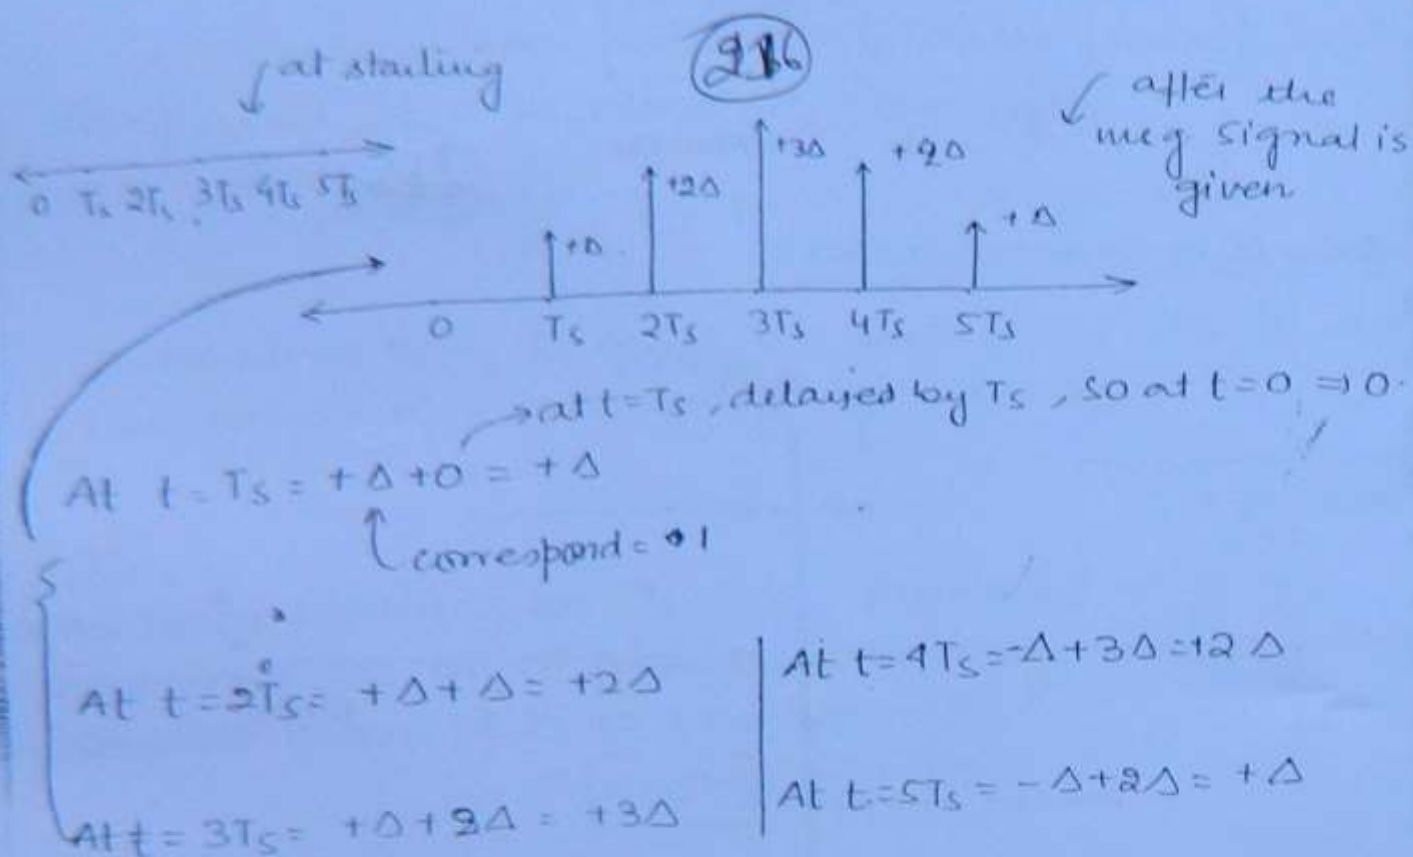 216
at starting
after the
msg signal is
given
0 Ts 2Ts 3Ts 4Ts 5Ts
+Δ +2Δ +3Δ +2Δ +Δ
0 Ts 2Ts 3Ts 4Ts 5Ts
→ at t=Ts, delayed by Ts, so at t=0 ⇒ 0.
At t = Ts = +Δ +0 = +Δ
correspond = 1
At t = 2Ts = +Δ+Δ = +2Δ
At t = 3Ts = +Δ+2Δ = +3Δ
At t=4Ts = -Δ+3Δ = +2Δ
At t=5Ts = -Δ+2Δ = +Δ